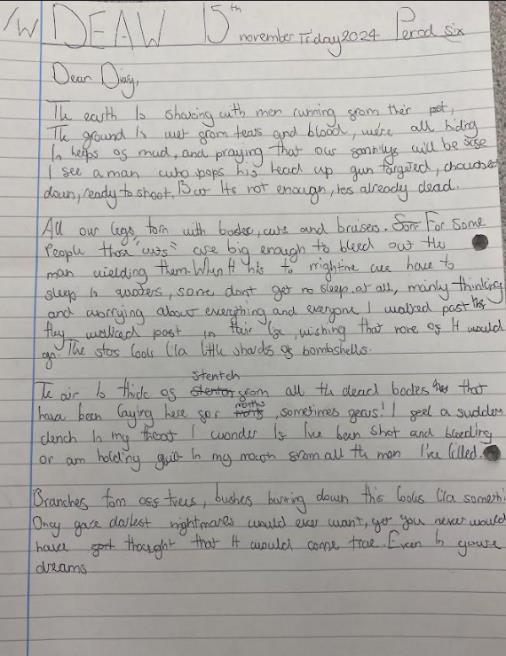 /W DEAW 15th november friday 2024 Perod six
Dear Diay,
The earth Is shaking with men running from their post,
The ground Is wet from tears and blood, we're all hiding
In heeps of mud, and praying that our familys will be safe
I see a man who pops his head up gun targeted, chouched
down, ready to shoot. But Its not enough, hes already dead.
All our legs torn with bodes, cuts and bruises. For Some
People thoes "cuts" are big enough to bleed out the
man wielding them. When It hits to nightime we have to
sleep In quaters, some dont get no sleep at all, mainly thinking
and worrying about everything and everyone I walked past
they walked past in their life, wishing that none of It would
go. The stars looks like little shards of bombshells.
The air Is thick of stentch from all the dead bodies that
have been laying here for months, sometimes years! I feel a sudden
clench In my throat I wonder Is I've been shot and bleeding
or am holding guilt In my mouth from all the men I've killed.
Branches torn off trees, bushes burning down this looks like somethi
Only your darkest nightmares would ever want, yet you never would
have thought that It would come true. Even In youre
dreams